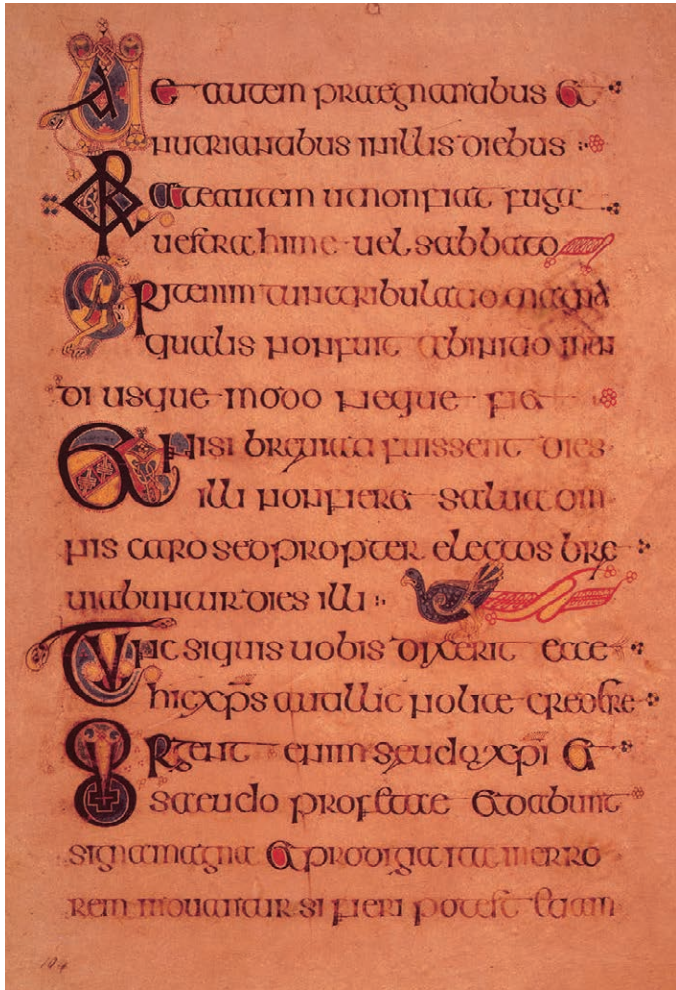 Uae autem praegnantibus et
nutrientibus in illis diebus
Orate autem ut non fiat fuga
uestra hime uel sabbato
Erit enim tunc tribulatio magna
qualis non fuit ab initio mun
di usque modo neque fiet
Et nisi breuiati fuissent dies
illi non fieret salua om
nis caro sed propter electos bre
uiabuntur dies illi
Tunc siquis uobis dixerit ecce
hic xps aut illic nolite credere
Surgent enim seudo xpi et
saeudo profetae et dabunt
signa magna et prodigia ita ut in erro
rem inducantur si fieri potest etiam
104